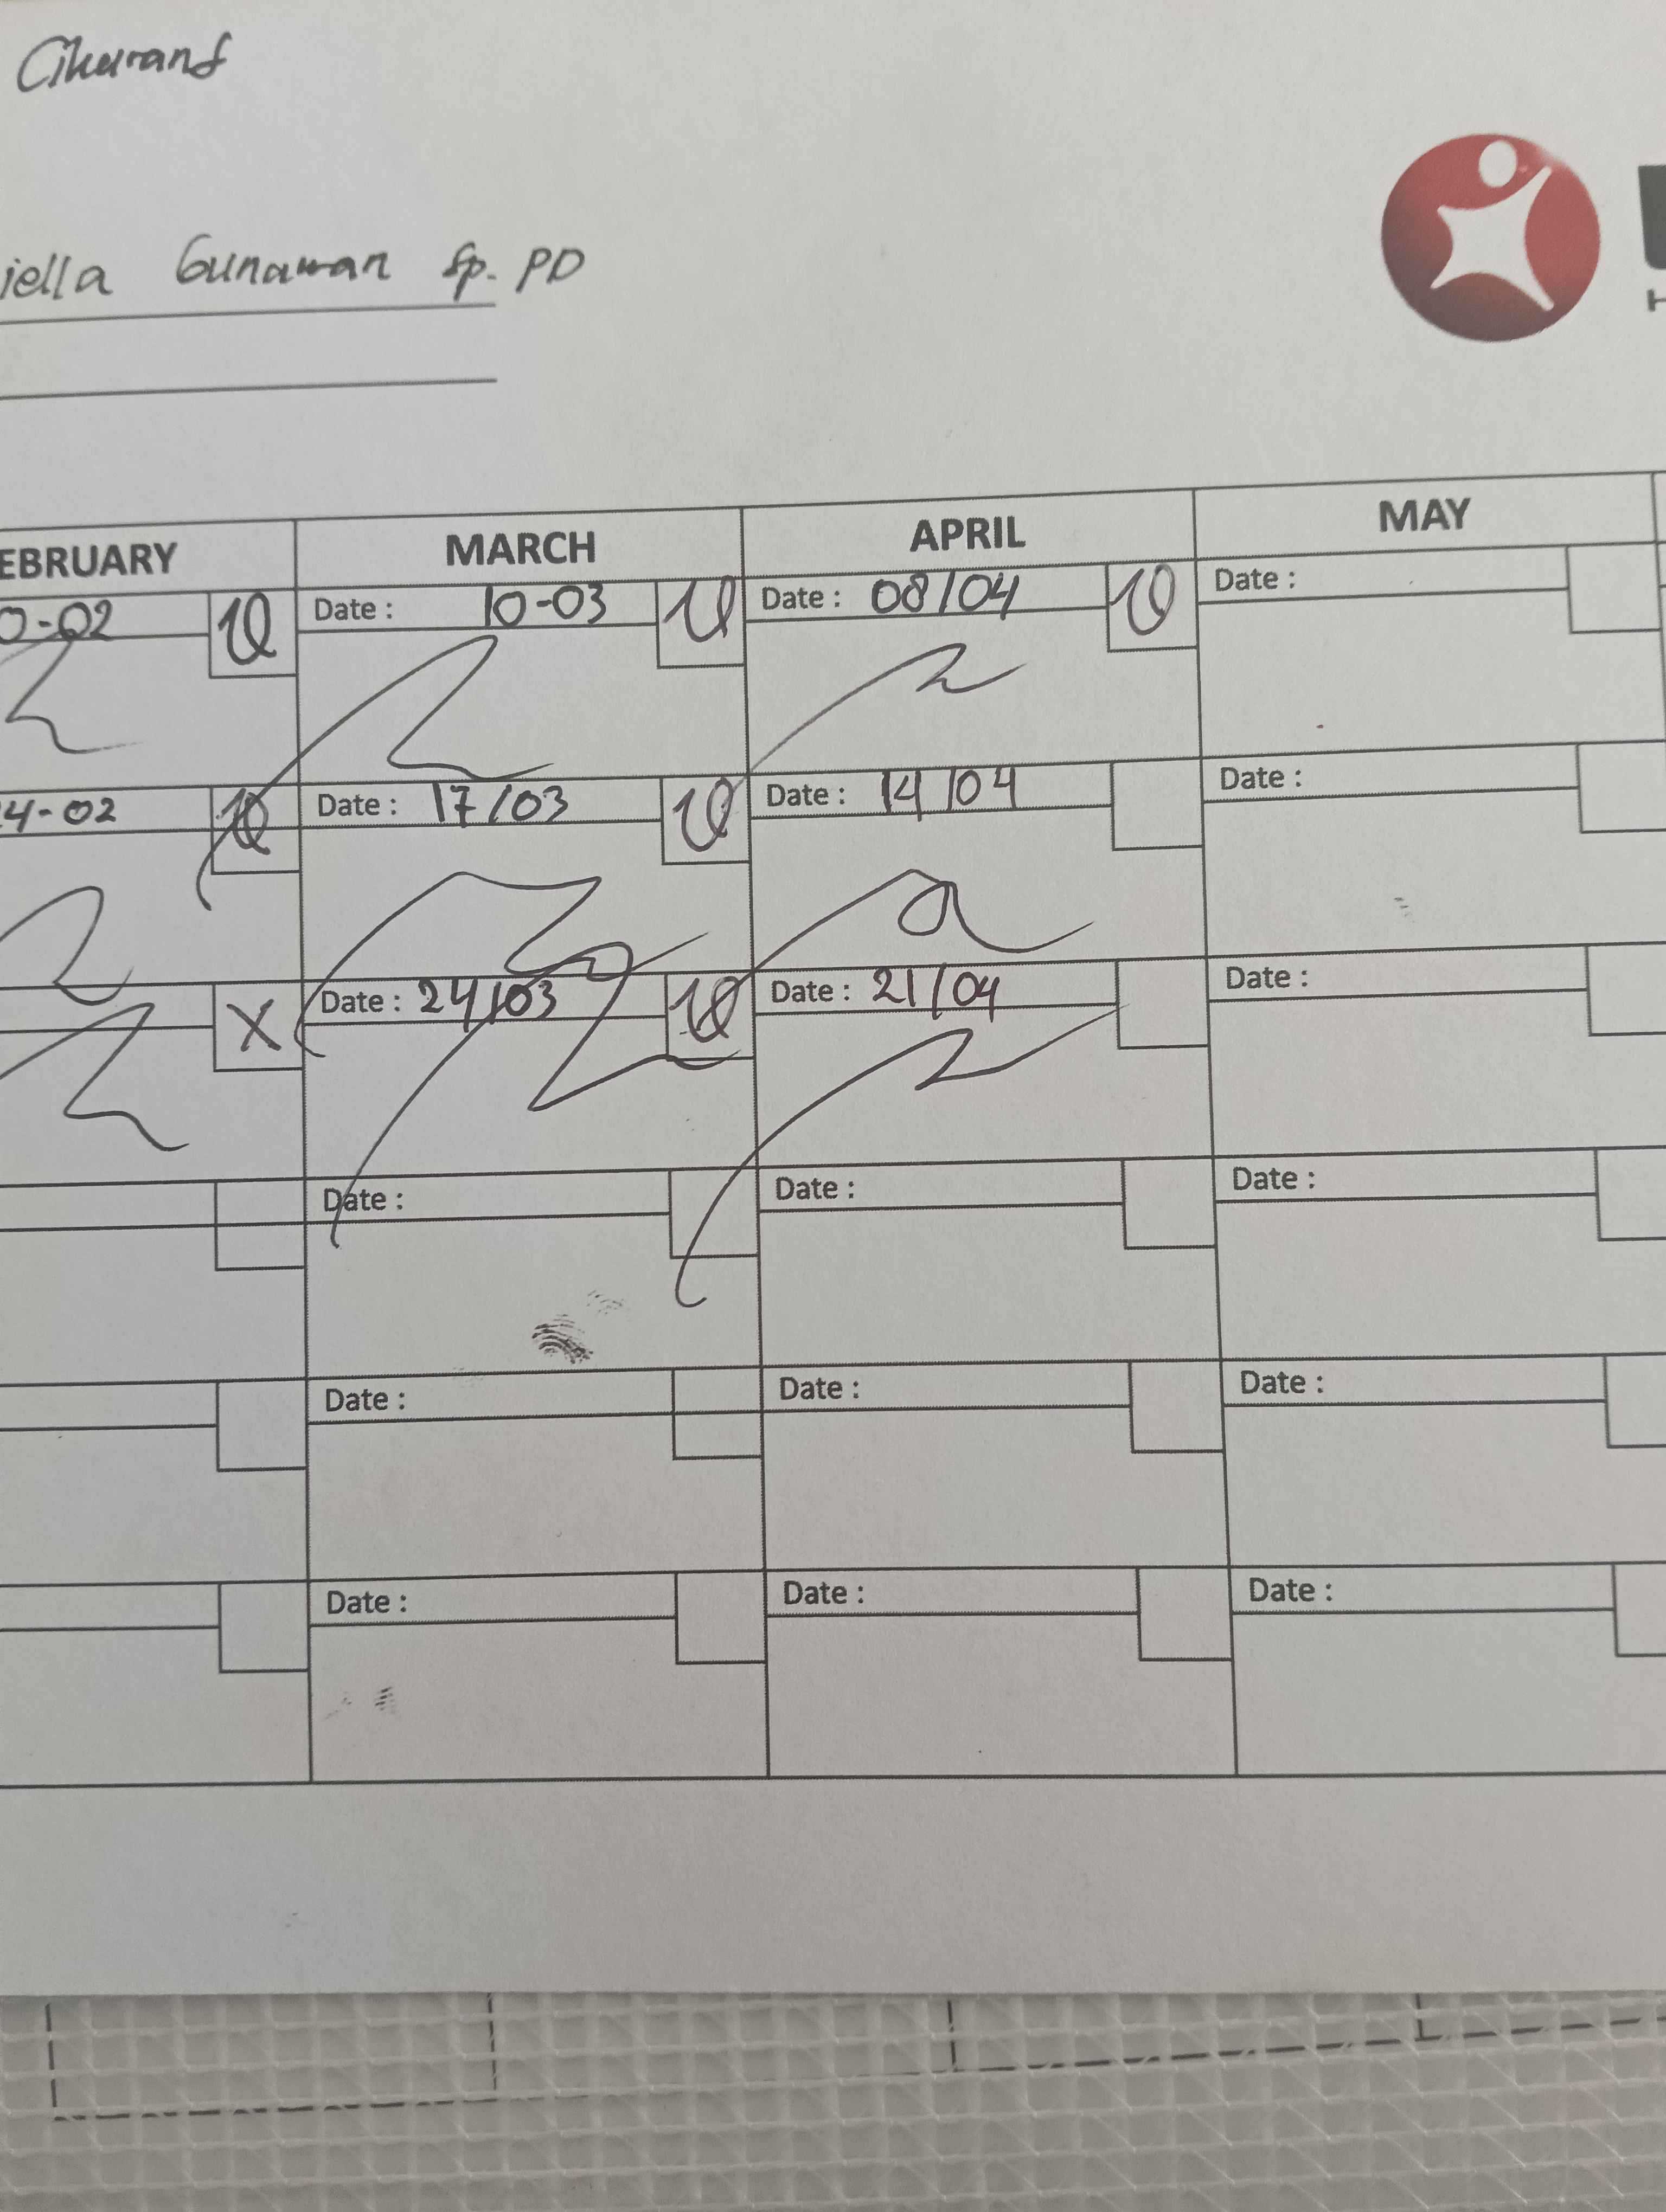 Cikarang
iella Gunawan Sp. PD
EBRUARY MARCH APRIL MAY
0-02 Date : 10-03 Date : 08/04 Date :
4-02 Date : 17/03 Date : 14/04 Date :
X Date : 24/03 Date : 21/04 Date :
Date : Date : Date :
Date : Date : Date :
Date : Date : Date :